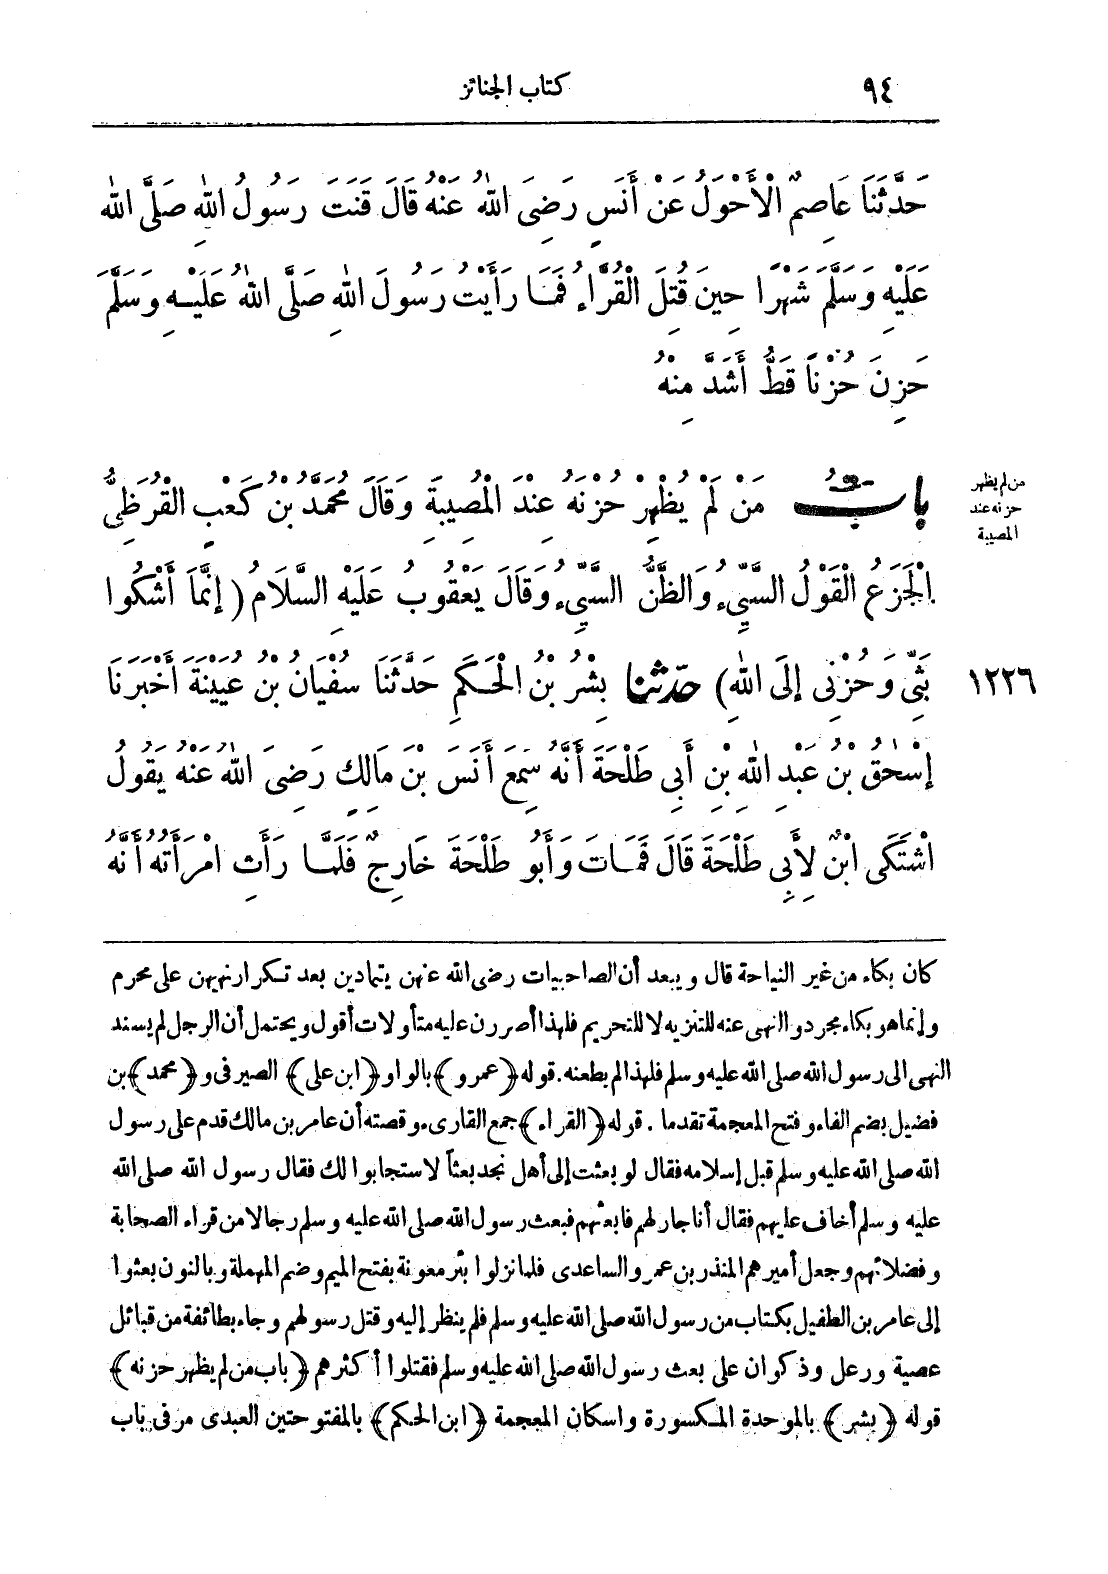 ٩٤
كتاب الجنائز
حَدَّثَنَا عَاصِمٌ الْأَحْوَلُ عَنْ أَنَسٍ رَضِىَ اللهُ عَنْهُ قَالَ قَنَتَ رَسُولُ اللهِ صَلَّى اللهُ
عَلَيْهِ وَسَلَّمَ شَهْرًا حِينَ قُتِلَ الْقُرَّاءُ فَمَا رَأَيْتُ رَسُولَ اللهِ صَلَّى اللهُ عَلَيْهِ وَسَلَّمَ
حَزِنَ حُزْنًا قَطُّ أَشَدَّ مِنْهُ
بَابُ مَنْ لَمْ يُظْهِرْ حُزْنَهُ عِنْدَ الْمُصِيبَةِ وَقَالَ مُحَمَّدُ بْنُ كَعْبٍ الْقُرَظِىُّ
من لم يظهر
حزنه عند
المصيبة
الْجَزَعُ الْقَوْلُ السَّيِّىءُ وَالظَّنُّ السَّيِّىءُ وَقَالَ يَعْقُوبُ عَلَيْهِ السَّلَامُ (إِنَّمَا أَشْكُوا
بَثِّى وَحُزْنِى إِلَى اللهِ) حدّثنا بِشْرُ بْنُ الْحَكَمِ حَدَّثَنَا سُفْيَانُ بْنُ عُيَيْنَةَ أَخْبَرَنَا
١٢٢٦
إِسْحٰقُ بْنُ عَبْدِ اللهِ بْنِ أَبِى طَلْحَةَ أَنَّهُ سَمِعَ أَنَسَ بْنَ مَالِكٍ رَضِىَ اللهُ عَنْهُ يَقُولُ
اشْتَكَى ابْنٌ لِأَبِى طَلْحَةَ قَالَ فَمَاتَ وَأَبُو طَلْحَةَ خَارِجٌ فَلَمَّا رَأَتِ امْرَأَتُهُ أَنَّهُ
كان بكاء من غير النياحة قال ويبعد أن الصاحبيات رضى الله عنهن يتمادين بعد تكرار نهيهن على محرم
وإنما هو بكاء مجرد والنهى عنه للتنزيه لا للتحريم فلهذا أصررن عليه متأولات أقول ويحتمل أن الرجل لم يسند
النهى الى رسول الله صلى الله عليه وسلم فلهذا لم يطعنه. قوله ﴿عمرو﴾ بالواو ﴿ابن على﴾ الصيرفى و﴿محمد﴾ بن
فضيل بضم الفاء وفتح المعجمة تقدما. قوله ﴿القراء﴾ جمع القارىء وقصته أن عامر بن مالك قدم على رسول
الله صلى الله عليه وسلم قبل إسلامه فقال لو بعثت إلى أهل نجد بعثاً لاستجابوا لك فقال رسول الله صلى الله
عليه وسلم أخاف عليهم فقال أنا جار لهم فابعثهم فبعث رسول الله صلى الله عليه وسلم رجالا من قراء الصحابة
وفضلائهم وجعل أميرهم المنذر بن عمرو الساعدى فلما نزلوا بئر معونة بفتح الميم وضم المهملة وبالنون بعثوا
إلى عامر بن الطفيل بكتاب من رسول الله صلى الله عليه وسلم فلم ينظر إليه وقتل رسولهم وجاء بطائفة من قبائل
عصية ورعل وذكوان على بعث رسول الله صلى الله عليه وسلم فقتلوا أكثرهم ﴿باب من لم يظهر حزنه﴾
قوله ﴿بشر﴾ بالموحدة المكسورة واسكان المعجمة ﴿ابن الحكم﴾ بالمفتوحتين العبدى مر فى باب